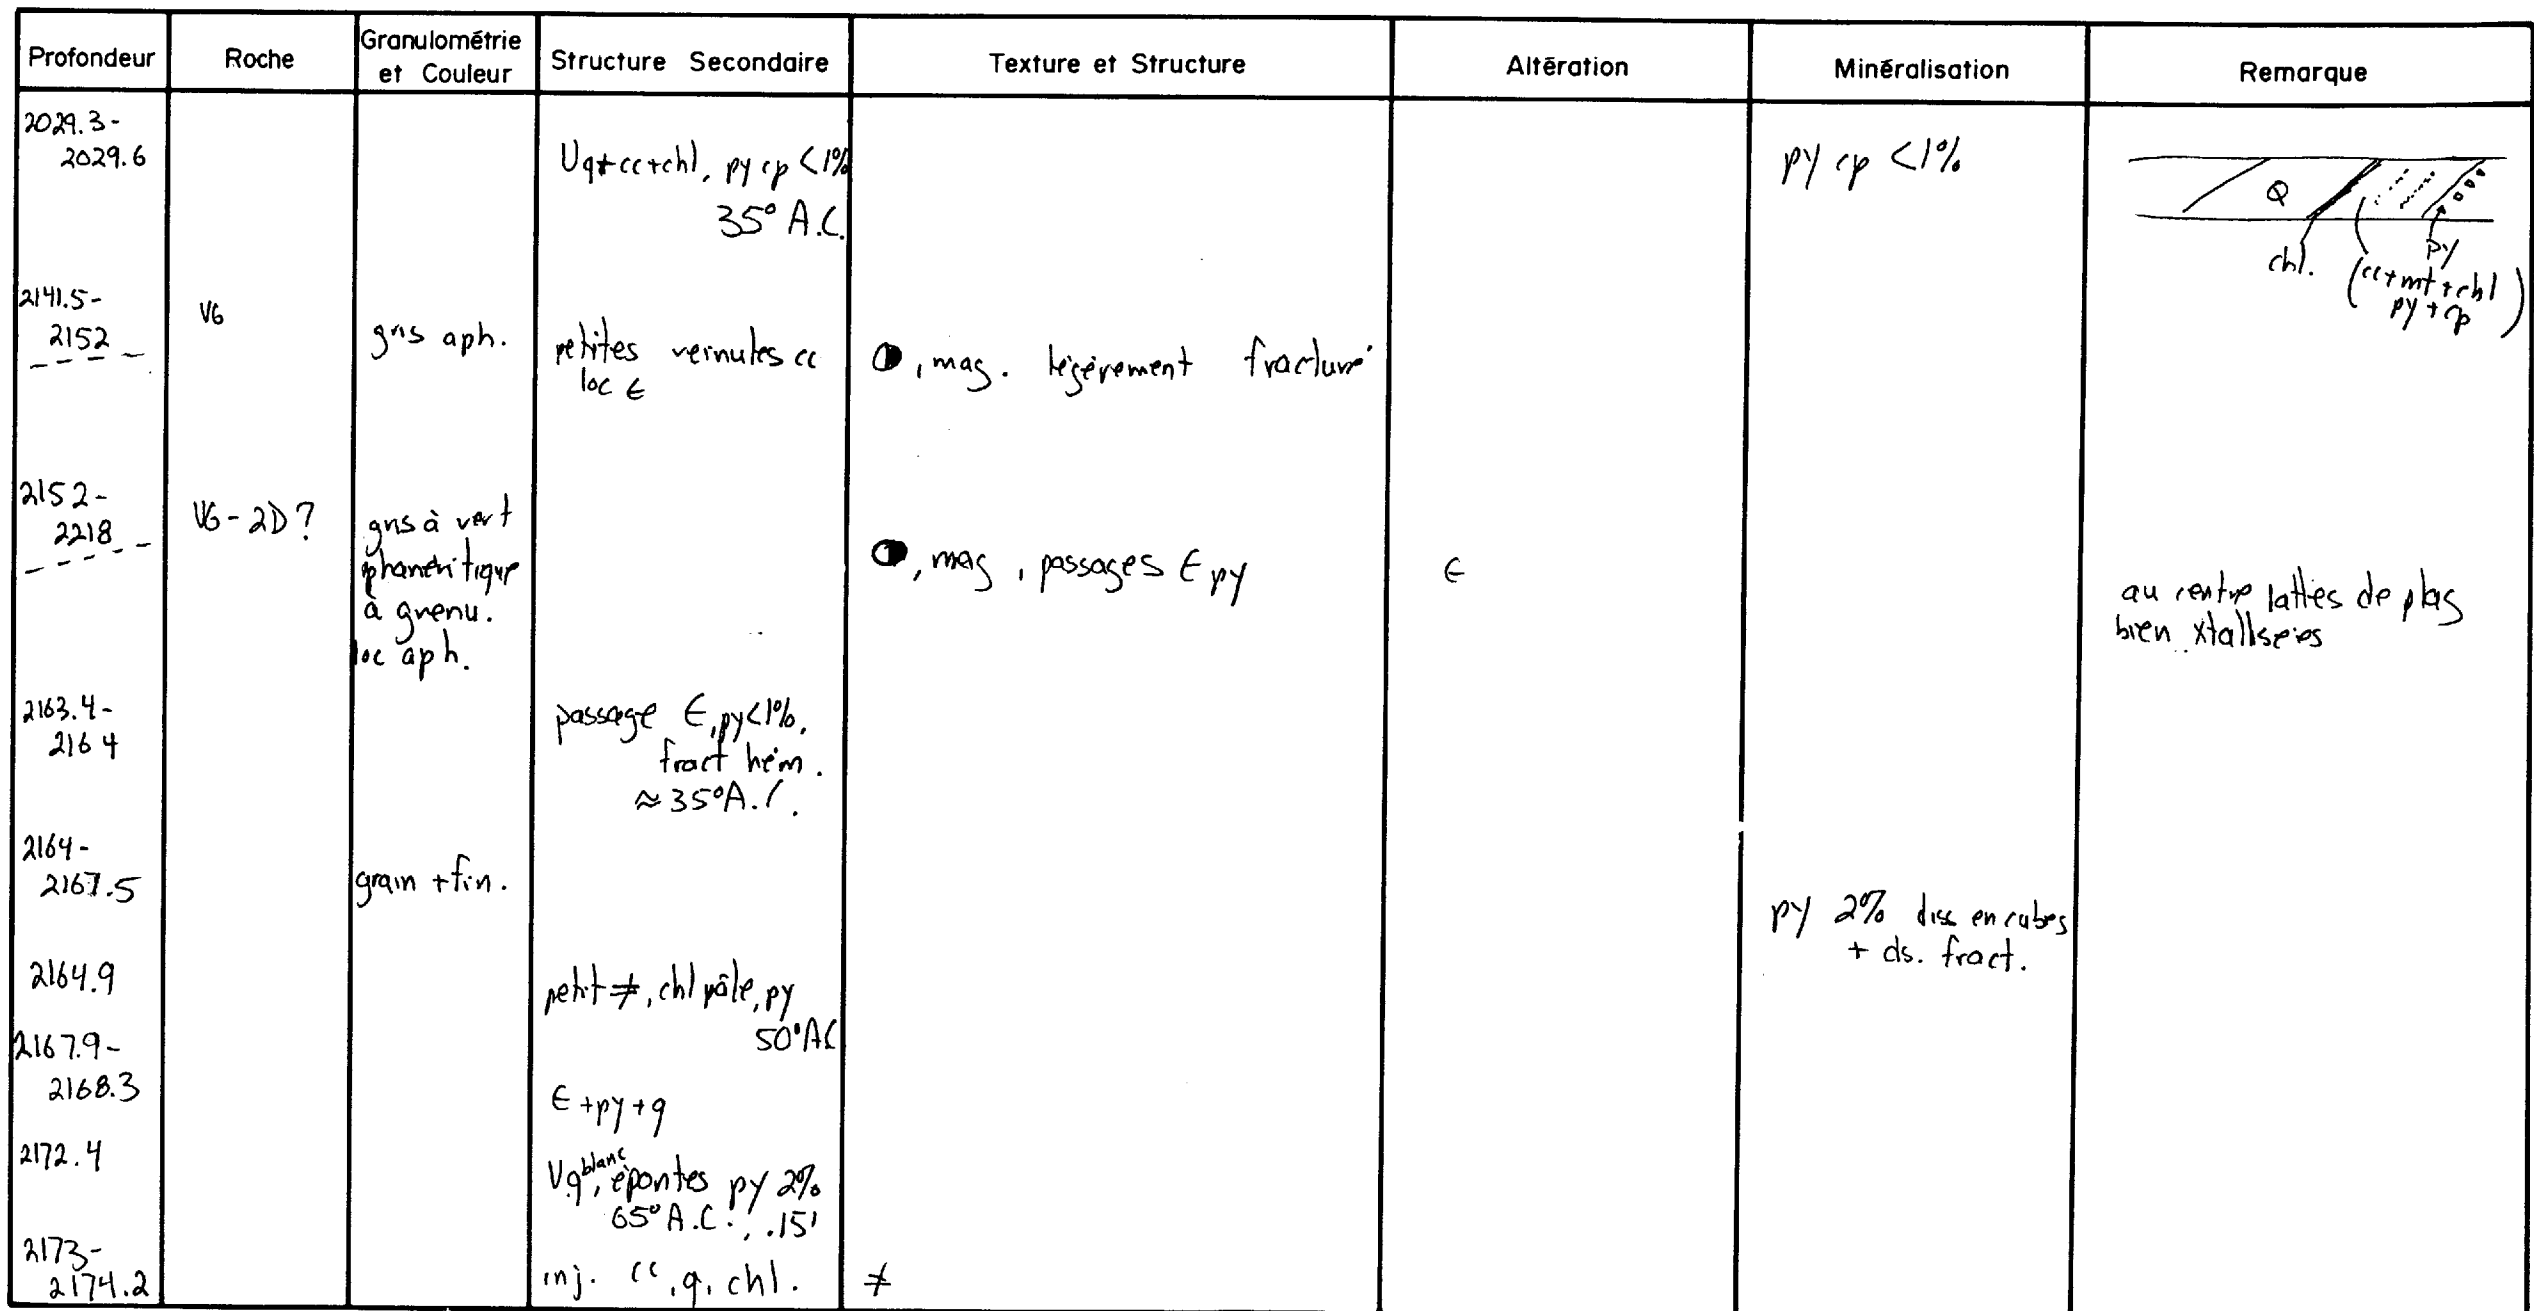 Profondeur Roche Granulométrie et Couleur Structure Secondaire Texture et Structure Altération Minéralisation Remarque
2029.3-
2029.6
Vq+cc+chl, py cp <1%
35° A.C.
py cp <1%
Q
chl.
py
(cc+mt+chl
py+cp)
2141.5-
2152
V6
gris aph.
petites veinules cc
loc ∈
◑, mag. légèrement fracturé
2152-
2218
V6-2D?
gris à vert
phanéritique
à grenu.
loc aph.
◑, mag, passages ∈ py
∈
au centre lattes de plag
bien xtallisées
2163.4-
2164
passage ∈, py<1%.
fract hém.
≈35°A.C.
2164-
2167.5
grain +fin.
py 2% diss en cubes
+ ds. fract.
2164.9
petit ≠, chl pâle, py
50°AC
2167.9-
2168.3
∈ +py+q
2172.4
Vq blanc, épontes py 2%
65° A.C., .15'
2173-
2174.2
inj. cc, q, chl. ≠